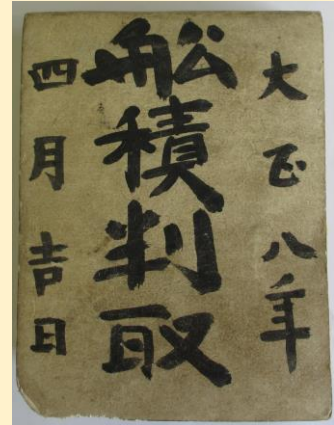 大正八年
舩積判取
四月吉日